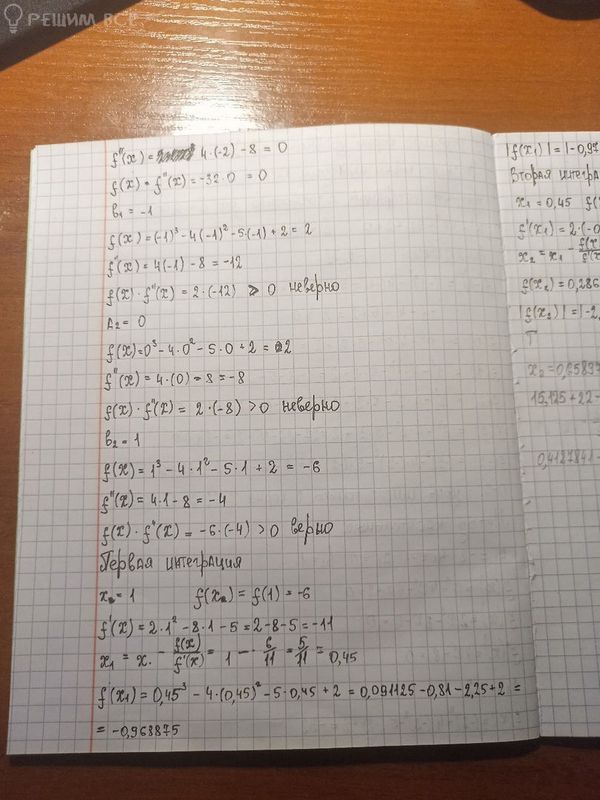 РЕШИМ ВСЕ
f''(x) = 4·(-2) - 8 = 0
f(x) · f''(x) = -32·0 = 0
b₁ = -1
f(x) = (-1)³ - 4(-1)² - 5·(-1) + 2 = 2
f''(x) = 4(-1) - 8 = -12
f(x) · f''(x) = 2·(-12) > 0 неверно
A₂ = 0
f(x) = 0³ - 4·0² - 5·0 + 2 = 2
f''(x) = 4·(0) - 8 = -8
f(x) · f''(x) = 2·(-8) > 0 неверно
b₂ = 1
f(x) = 1³ - 4·1² - 5·1 + 2 = -6
f''(x) = 4·1 - 8 = -4
f(x) · f''(x) = -6·(-4) > 0 верно
Первая интеграция
x₀ = 1 f(x₀) = f(1) = -6
f'(x) = 2·1² - 8·1 - 5 = 2-8-5 = -11
x₁ = x₀ - f(x)/f'(x) = 1 - 6/11 = 5/11 = 0,45
f(x₁) = 0,45³ - 4·(0,45)² - 5·0,45 + 2 = 0,091125 - 0,81 - 2,25 + 2 =
= -0,968875
|f(x₁)| = |-0,97
Вторая интегра
x₁ = 0,45 f(
f'(x₁) = 2·(-0
x₂ = x₁ - f(x/f'(x
f(x₂) = 0,286
|f(x₂)| = |-2,
Т
x₂ = 0,65897
15,125 + 22 -
0,4127841 -